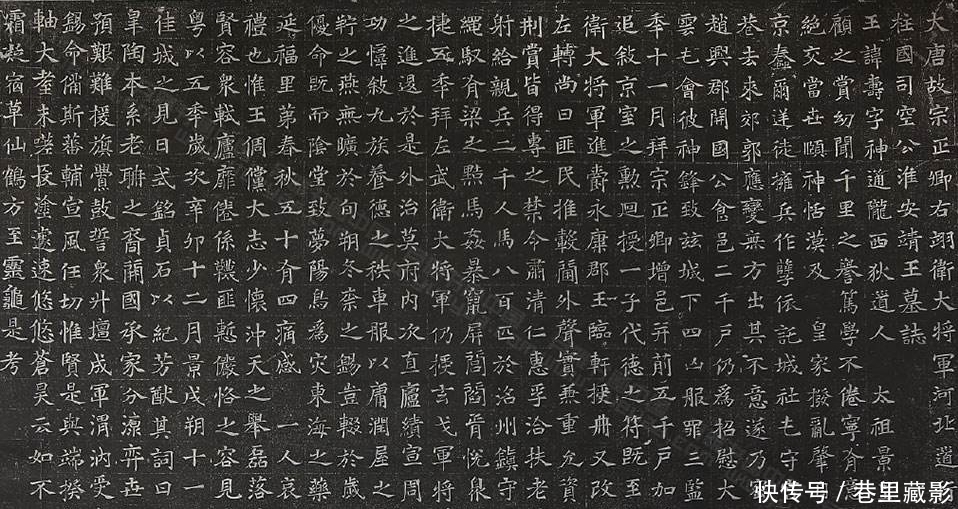 大唐故宗正卿右翊衛大將軍河北道行
柱國司空公淮安靖王墓誌
王諱壽字神通隴西狄道人 太祖景
顧之賞幼聞千里之譽篤學不倦寧肯意
絕交當世頤神恬漠及 皇家撥亂肇
京蠢爾迷徒擁兵作孽依託城社屯守
巷去來郊郭應變無方出其不意遂乃
趙興郡開國公食邑二千戶仍為招慰大
雲屯會彼神鋒致茲城下四凶服罪三監
季十一月拜宗正卿增邑并前五千戶加
追敍京室之勳迴授一子代德之符既至
衛大將軍進爵永康郡王臨軒授冊又改
左轉尚曰匪民推轂蕃外聲實兼重允資
荊賞皆得專之禁令肅清仁惠孚洽扶老
射給親兵二千人馬八百匹於洺州鎮守
繩馭有梁之黠馬姦暴竄屏閭閻胥悅
捷五季拜左武衛大將軍仍授玄戈軍將
之進退於是外治莫府內次直廬績宣周
功惇敍九族養德之秩車服以庸潤屋之
之燕無曠於旬朔冬柰之錫豈輟於歲
優命既而陰堂致夢陽鳥為灾東海之藥
延福里第春秋五十有四痛感 一人哀
禮也惟王倜儻大志少懷沖天之舉磊落
賢容衆軾廬靡倦係韈匪慙儼恪之容見
粵以五季歲次辛卯十二月景戌朔十一
佳城之見日式銘貞石以紀芳猷其詞曰
皐陶本系老聃之裔蕭國承家分源弈世
預艱難援旗舋鼓誓衆升壇成軍渭汭受
錫命備斯蕃輔宣風任切惟賢是與端揆
軸大耋未嗟長塗遽速悠悠蒼昊云如不
霜凝宿草仙鶴方至靈龜是考
快传号 / 巷里藏影